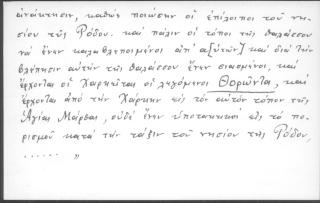 ἀνάκτησιν, καθὼς ποιώσην οἱ ἐπίλοιποι τοῦ νη-
σίου τῆς Ρόδου. καὶ πάλιν οἱ τόποι τῆς θαλάσσου
νὰ ἔνεν καλαβλεπομένοι ἀπ' α[ὐτὴν] καὶ διὰ τὴν
βλέπησιν αὐτὴν τῆς θαλάσσου ἔνεν ειασμένοι, καὶ
ἔρχονται οἱ Χαρκῆται οἱ λεγόμενοι Θορῶνται, καὶ
ἔρχονται ἀπὸ τὴν Χάρκην εἰς τὸν αὐτὸν τόπον τῆς
Ἁγίας Μάρθας, οὐδὲ ἔνεν ὑποτακτικοὶ εἰς τὸ πο-
ρισμοῦ κατὰ τὴν τάξιν τοῦ νησίου τῆς Ρόδου,
...... "